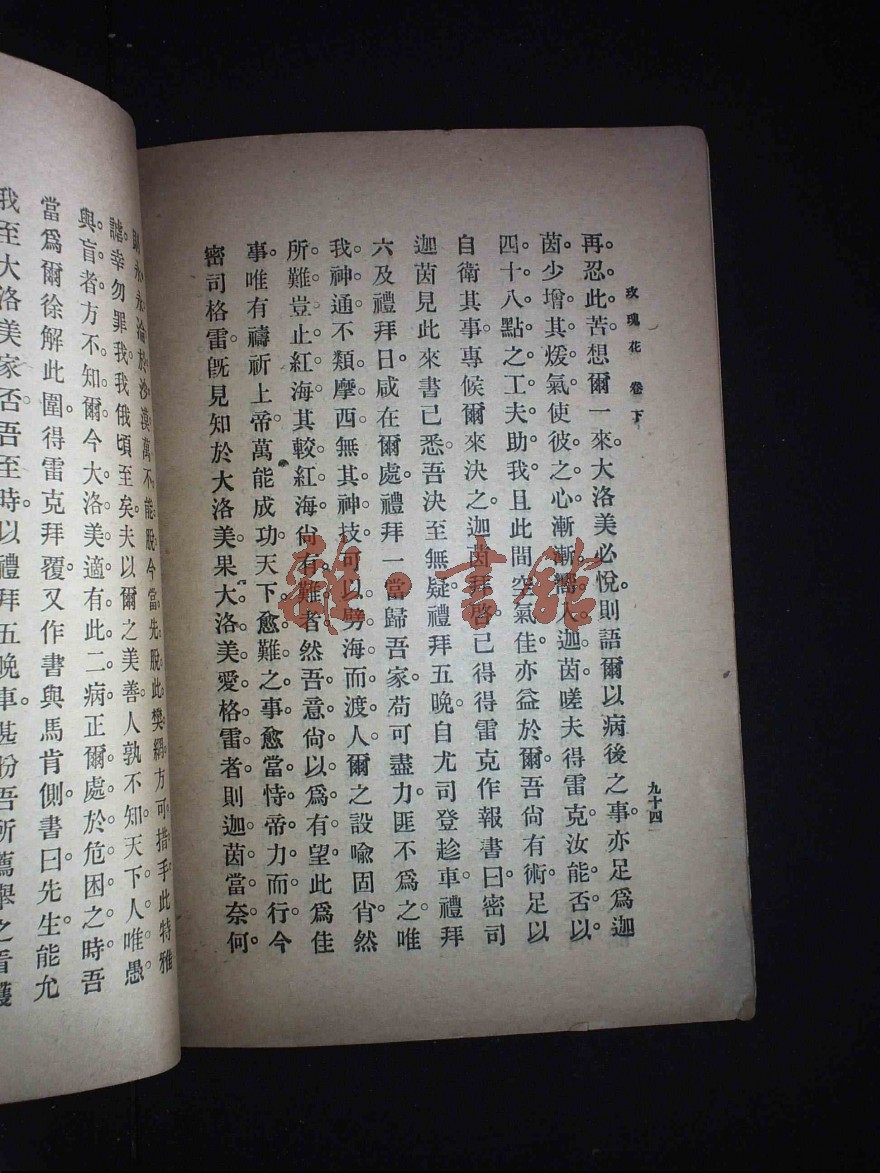 玫瑰花 卷下
九十四
再。忍。此。苦想爾一來。大洛美必悅。則語爾以病後之事。亦足爲迦
茵。少增。其。煖氣使彼之心漸漸嚮人。迦茵嗟夫得雷克汝能否以
四十八點之工夫助我。且此間空氣佳。亦益於爾。吾尙有術足以
自衛。其事專候爾來決之。迦茵拜啓。已得得雷克作報書曰。密司
迦茵見此來書已悉。吾決至無疑。禮拜五晚。自尤司登趁車。禮拜
六及禮拜日。咸在爾處。禮拜一當歸吾家。苟可盡力。匪不爲之。唯
我。神通不類摩西。無其神技。可以劈海而渡人。爾之設喩固肖。然
所。難豈止紅海。其較紅海尙有難者。然吾意尙以爲有望。此爲佳
事。唯有禱祈上帝。萬能成功。天下愈難之事。愈當恃帝力而行。今
密司格雷。旣見知於大洛美。果大洛美愛格雷者。則迦茵當奈何。
永。永淪於沙漠。萬不能脫。今當先脫此樊網。方可措手。此特雅
謔。幸勿罪我。我俄頃至矣。夫以爾之美善。人孰不知。天下人唯愚
與。盲者方不知爾。今大洛美適有此二病。正爾處於危困之時。吾
當爲爾徐解此圍。得雷克拜覆。又作書與馬肯側。書曰。先生能允
我至大洛美家否。吾至時。以禮拜五晚車。甚盼吾所薦舉之看護